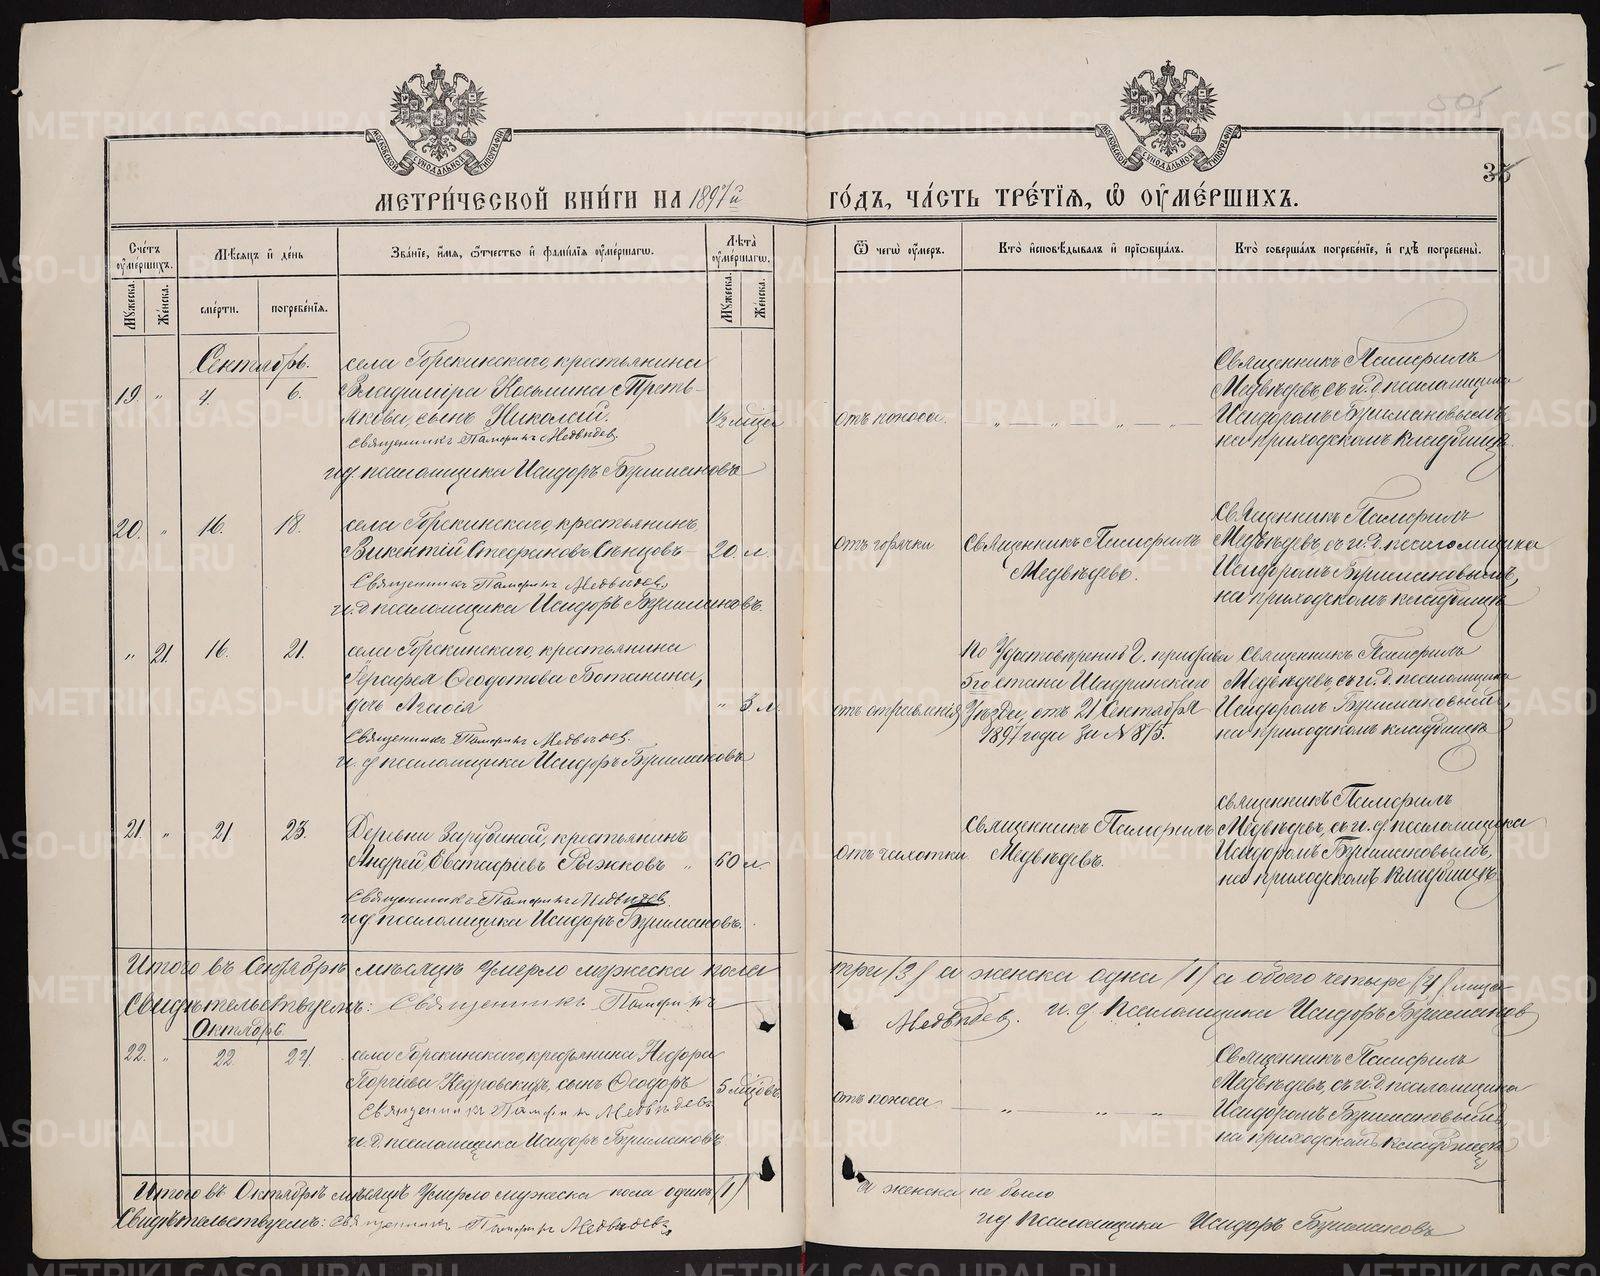 МЕТРИ́ЧЕСКОЙ КНИ́ГИ НА 1897й
ГО́ДЪ, ЧА́СТЬ ТРЕ́ТІѦ, Ѡ ОУМЕ́РШИХЪ.
35
Сче́тъ оуме́ршихъ.
Мѣ́сѧцъ и҆ де́нь
Зва́нїе, и҆́мѧ, ѻ҆́тчество и҆ фами́лїѧ оуме́ршагѡ.
Лѣта̀ оуме́ршагѡ.
Ѿ чегѡ̀ оу́меръ.
Кто̀ и҆сповѣ́дывалъ и҆ прїѡбща́лъ.
Кто̀ соверша́лъ погребе́нїе, и҆ гдѣ̀ погребены̀.
Мꙋ́жеска.
Же́нска.
сме́рти.
погребе́нїѧ.
Мꙋ́жеска.
Же́нска.
Сентябрь.
19. „ 4. 6.
села Горскинскаго, крестьянина
Владиміра Косьмина Треть-
якова, сынъ Николай.
Священникъ Памфилъ Медвѣдев.
и д. псаломщика Исидоръ Бушмановъ
1/2 мѣся
отъ поноса.
— „ — „ — „ — „ —
Священникъ Памфилъ
Медвѣдевъ, съ и. д. псаломщика
Исидоромъ Бушмановымъ,
на приходскомъ кладбищѣ.
20. „ 16. 18.
села Горскинскаго, крестьянинъ
Викентій Стефановъ Сѣнцовъ
Священникъ Памфилъ Медвѣдев.
и. д. псаломщика Исидоръ Бушмановъ.
20 л.
отъ горячки
Священникъ Памфилъ
Медвѣдевъ.
Священникъ Памфилъ
Медвѣдевъ, съ и. д. псаломщика
Исидоромъ Бушмановымъ,
на приходскомъ кладбищѣ
„ 21. 16. 21.
села Горскинскаго, крестьянина
Ѳеодотова Ботанина,
дочь Агнія
Священникъ Памфилъ Медвѣдев.
и. д. псаломщика Исидоръ Бушмановъ
„ 3 л.
отъ отравленія
По Удостовѣренію Г. пристава
5го стана Шадринскаго
Уѣзда, отъ 21 Сентября
1897 года за № 815.
Священникъ Памфилъ
Медвѣдевъ, съ и. д. псаломщика
Исидоромъ Бушмановымъ,
на приходскомъ кладбищѣ
21. „ 21 23.
Деревни Зарубиной, крестьянинъ
Андрей Евстафіевъ Рыжковъ „
Священникъ Памфилъ Медвѣдев
и д псаломщика Исидоръ Бушмановъ.
60 л.
отъ чахотки.
Священникъ Памфилъ
Медвѣдевъ.
Священникъ Памфилъ
Медвѣдевъ, съ и. д. псаломщика
Исидоромъ Бушмановымъ,
на приходскомъ кладбищѣ
Итого въ Сентябрѣ мѣсяцѣ умерло мужеска пола
три /3/ а женска одна /1/ а обоего четыре /4/ лица
Свидѣтельствуемъ: Священникъ Памфилъ
Медвѣдев. и. д псаломщика Исидоръ Бушманов
Октябрь
22. „ 22 24.
села Горскинскаго, крестьянина Ѳедора
Георгіева Кедровскихъ, сынъ Ѳеодоръ
Священникъ Памфилъ Медвѣдевъ
и. д. псаломщика Исидоръ Бушмановъ
5 мѣсцовъ
отъ поноса
— „ „ — „
Священникъ Памфилъ
Медвѣдевъ, съ и. д. псаломщика
Исидоромъ Бушмановымъ,
на приходскомъ кладбищѣ
Итого въ Октябрѣ мѣсяцѣ умерло мужеска пола одинъ /1/
а женска не было
Свидѣтельствуемъ: Священникъ Памфилъ Медвѣдевъ
и д псаломщика Исидоръ Бушмановъ
METRIKI.GASO-URAL.RU